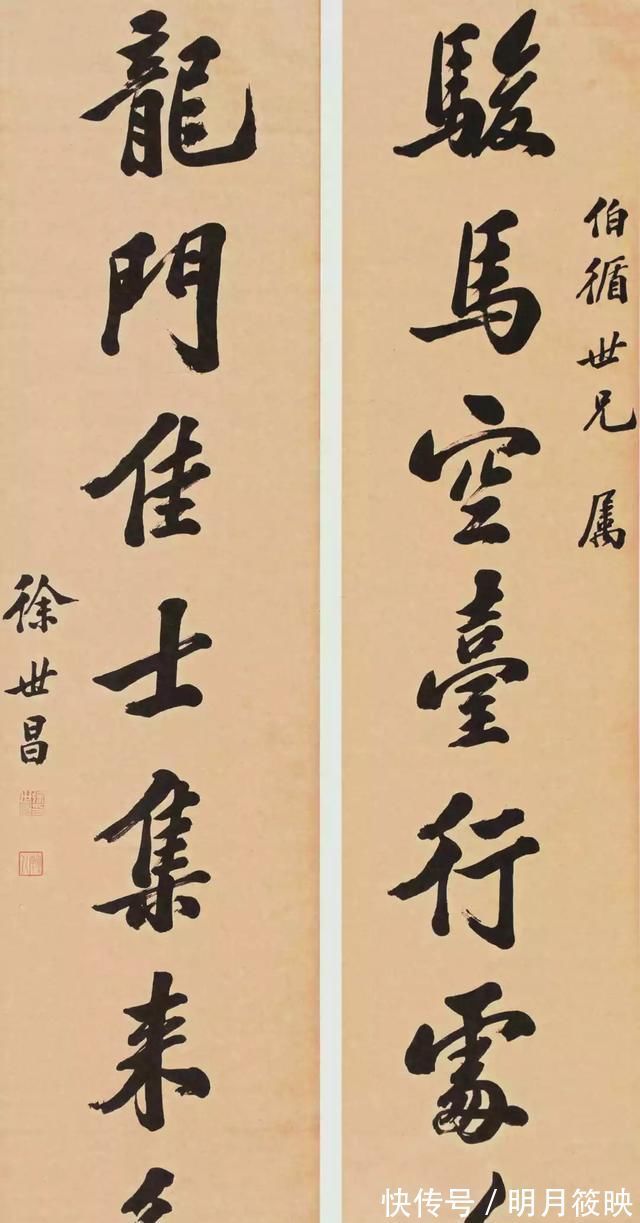 伯循世兄 属
駿馬空臺行處
龍門佳士集来
徐世昌
快传号／明月筱映